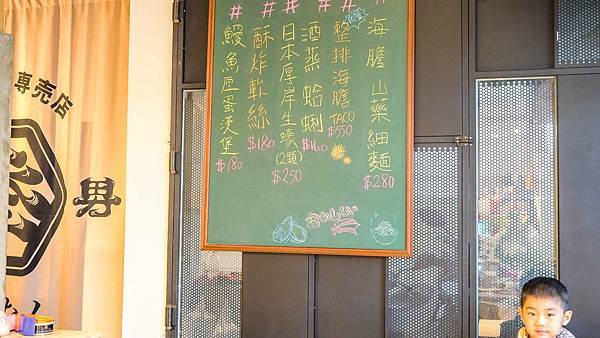 # # # # #
海膽山藥細麵
$280
整排海膽
TACO
$550
酒蒸蛤蜊
$160
日本厚岸生蠔
(2顆)
$250
酥炸軟絲
$180
鰻魚厚蛋漢堡
$180
おいしい
専売店
男